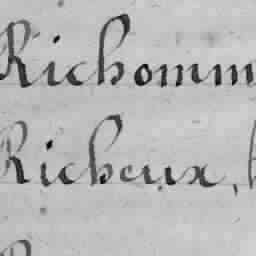 Richomm
Richeux,